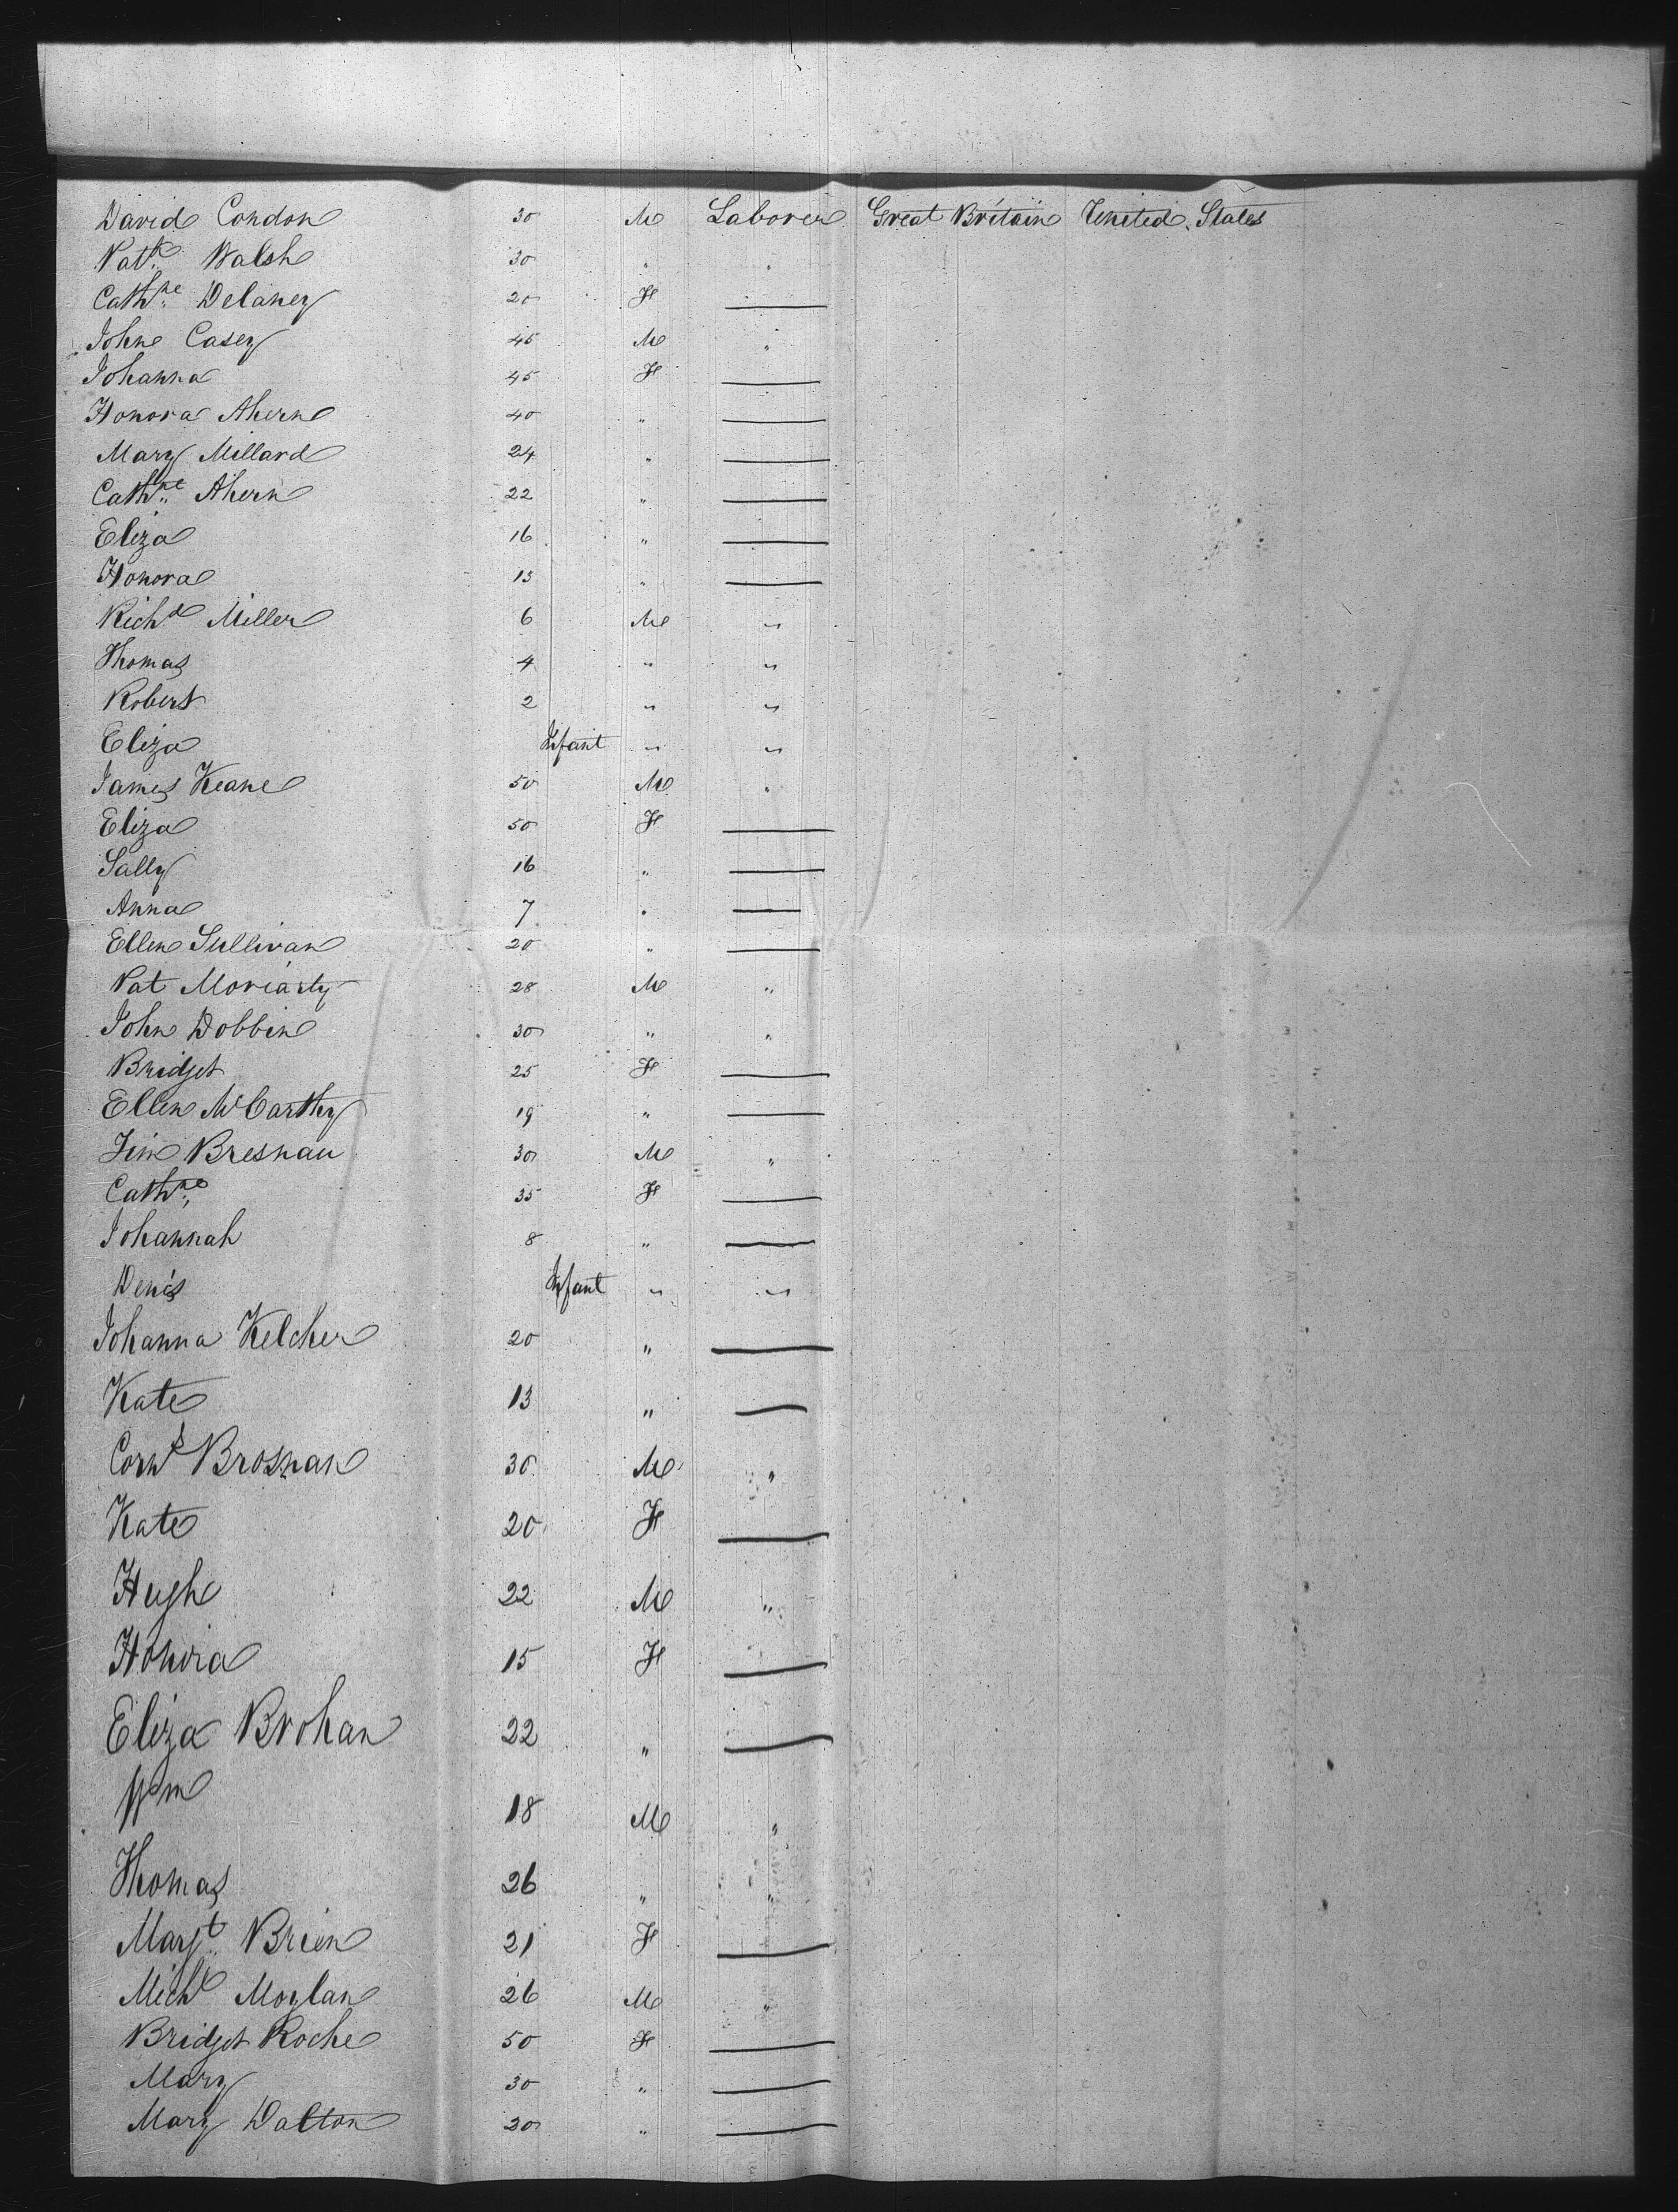 David Condon 30 M Laborer Great Britain United States
Patk. Walsh 30 " "
Cathne. Delaney 20 F —
John Casey 45 M "
Johanna 45 F —
Honora Ahern 40 " —
Mary Millard 24 " —
Cathne. Ahern 22 " —
Eliza 16 " —
Honora 13 " —
Richd Miller 6 M "
Thomas 4 " "
Robert 2 " "
Eliza Infant " "
James Keane 50 M "
Eliza 50 F —
Sally 16 " —
Anna 7 " —
Ellen Sullivan 20 " —
Pat Moriarty 28 M "
John Dobbin 30 " "
Bridget 25 F —
Ellen McCarthy 19 " —
Jim Bresnau 30 M "
Cathne. 35 F —
Johannah 8 " —
Denis Infant " "
Johanna Kelcher 20 " —
Kate 13 " —
Corns Brosnan 30 M "
Kate 20 F —
Hugh 22 M "
Honora 15 F —
Eliza Brohan 22 " —
Wm 18 M "
Thomas 26 " "
Margt. Brien 21 F —
Michl Moylan 26 M "
Bridget Roche 50 F —
Mary 30 " —
Mary Dalton 20 " —